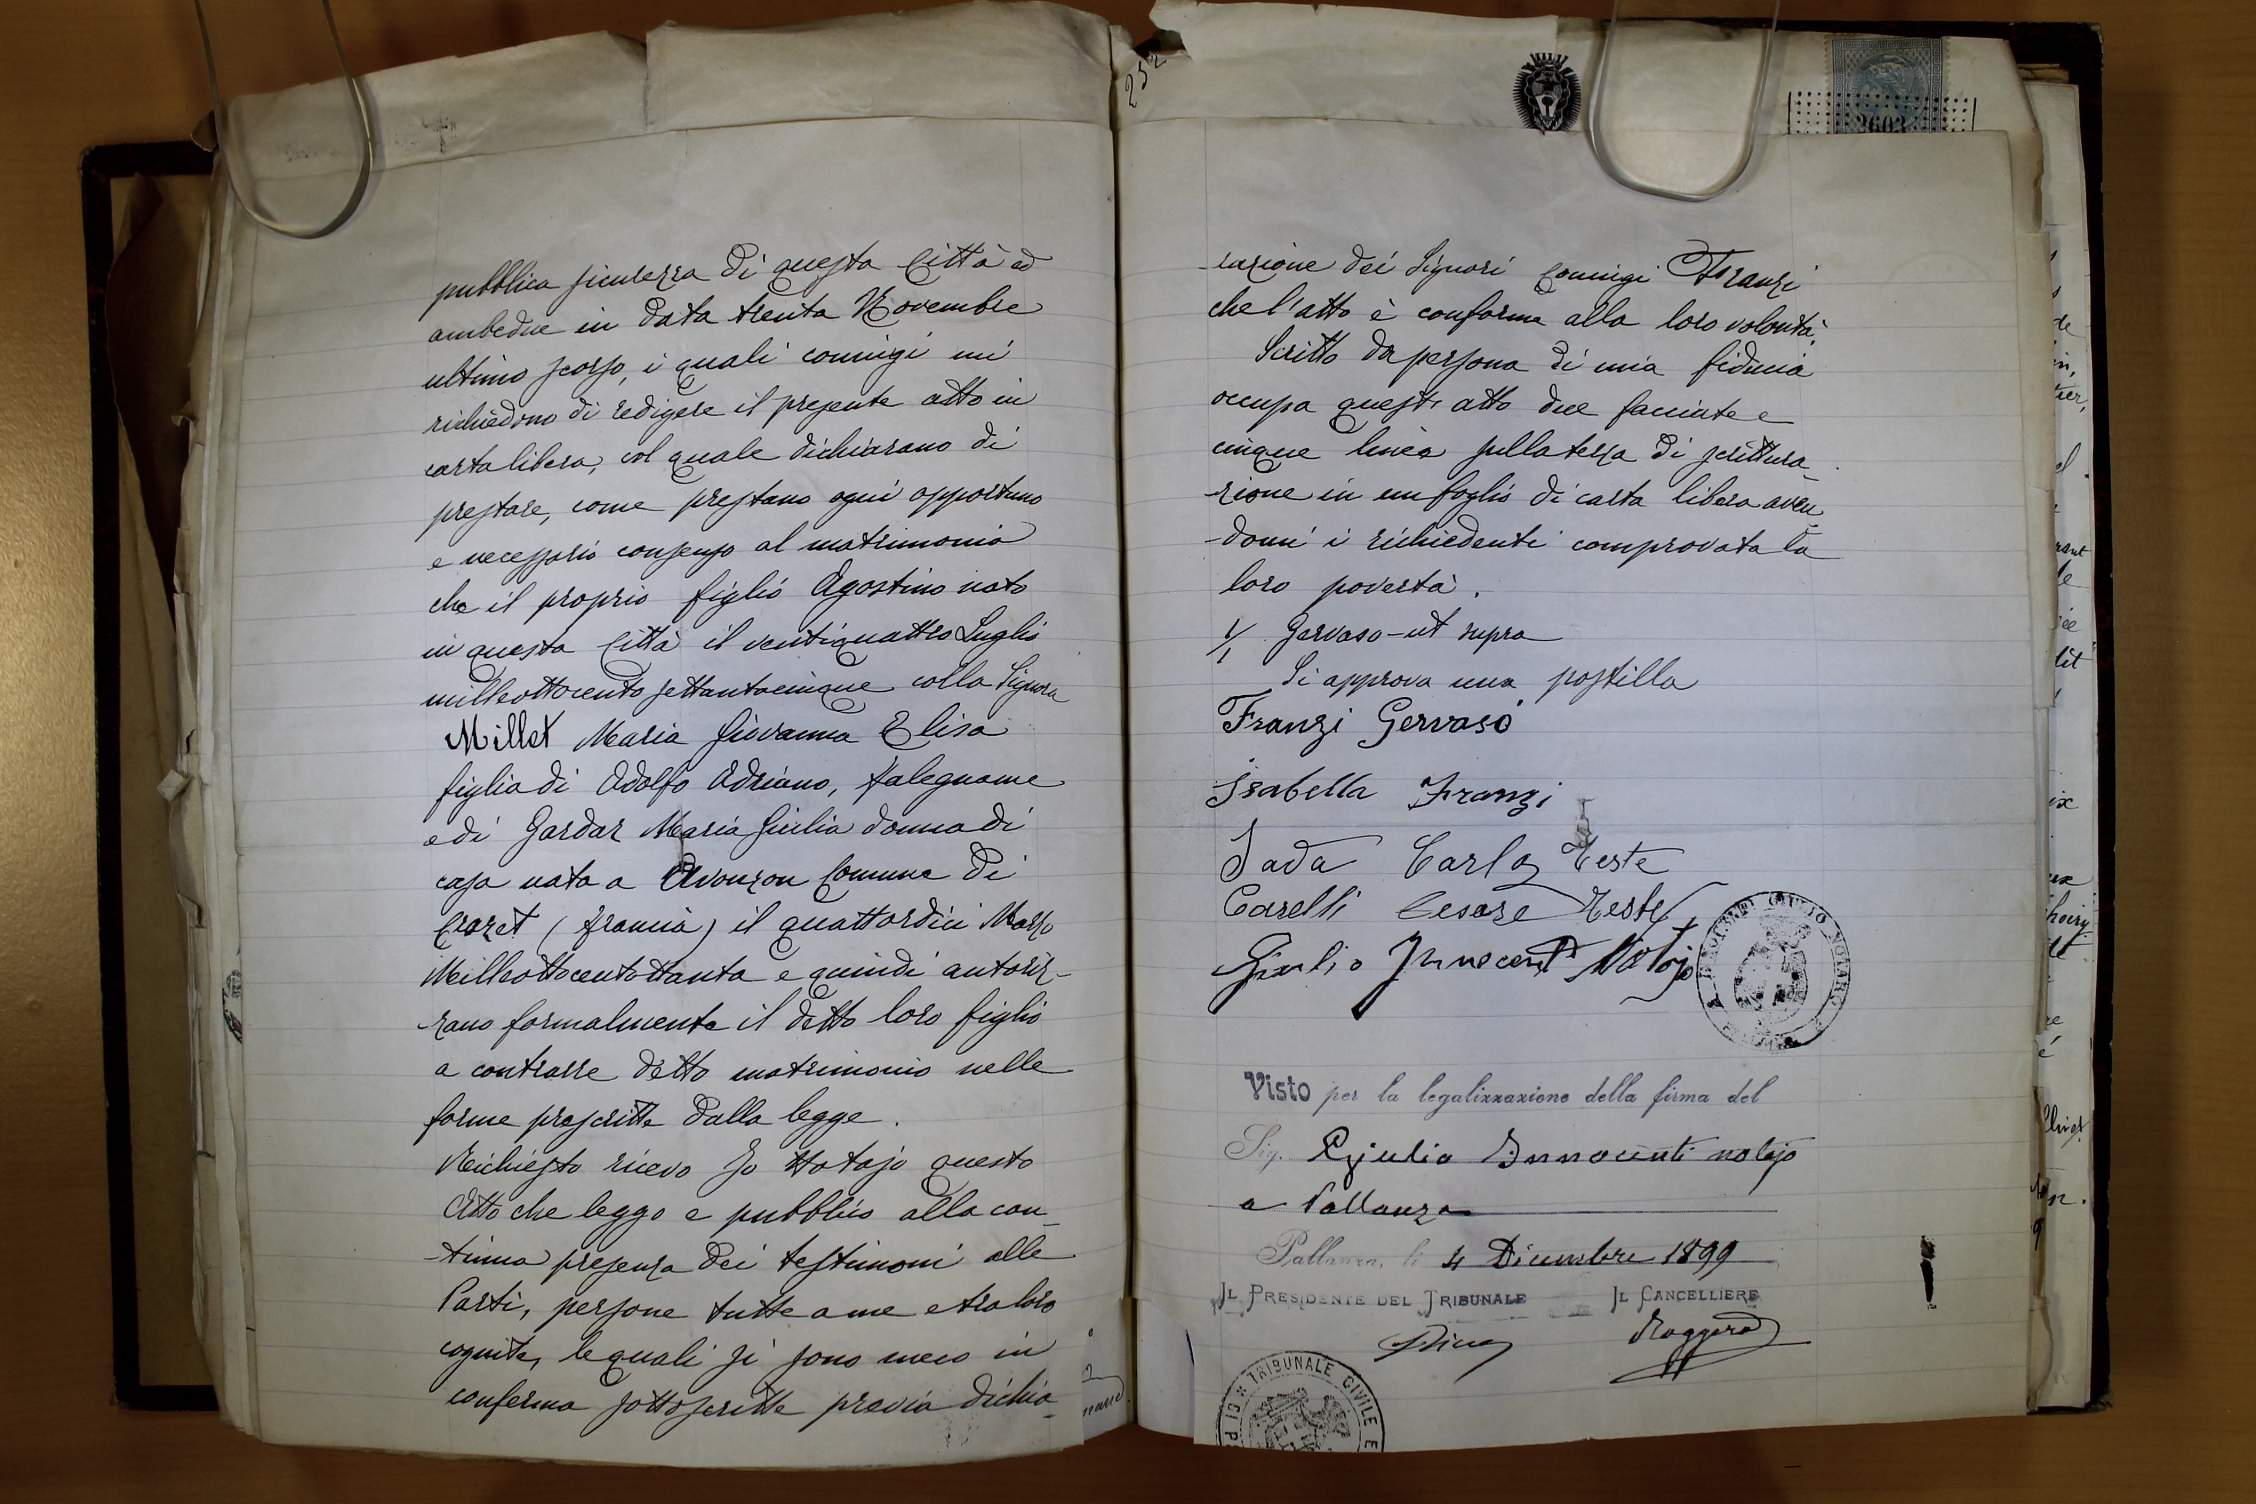 pubblica sicurezza di questa Città ed
ambedue in data trenta Novembre
ultimo scorso, i quali coniugi mi
richiedono di redigere il presente atto in
carta libera, col quale dichiarano di
prestare, come prestano ogni opportuno
e necessario consenso al matrimonio
che il proprio figlio Agostino nato
in questa Città il ventiquattro Luglio
milleottocento settantacinque colla Signora
Millet Maria Giovanna Elisa
figlia di Adolfo Adriano, falegname
e di Gardaz Maria Giulia donna di
casa nata a Avouzon Comune di
Crozet (Francia) il quattordici Marzo
Milleottocentottanta e quindi autoriz-
zano formalmente il detto loro figlio
a contrarre detto matrimonio nelle
forme prescritte dalla legge.
Richiesto ricevo Io Notajo questo
Atto che leggo e pubblico alla con-
-tinua presenza dei testimoni alle
Parti, persone tutte a me e tra loro
cognite, le quali si sono meco in
conferma sottoscritte previa dichia-
252
2603
-razione dei Signori Coniugi Franzi
che l'atto è conforme alla loro volontà.
Scritto da persona di mia fiducia
occupa quest' atto due facciate e
cinque linee sulla terza di scrittura-
-zione in un foglio di carta libera aven-
-domi i richiedenti comprovata la
loro povertà.
1/1 Gervaso - ut supra
Si approva una postilla
Franzi Gervaso
Isabella Franzi
Sada Carlo Teste
Carelli Cesare Teste
Giulio Innocenti Notajo
INNOCENTI GIULIO NOTARO
Visto per la legalizzazione della firma del
Sig. Giulio Innocenti notajo
a Pallanza
Pallanza, li 4 Dicembre 1899
IL PRESIDENTE DEL TRIBUNALE IL CANCELLIERE
Roggero
TRIBUNALE CIVILE E